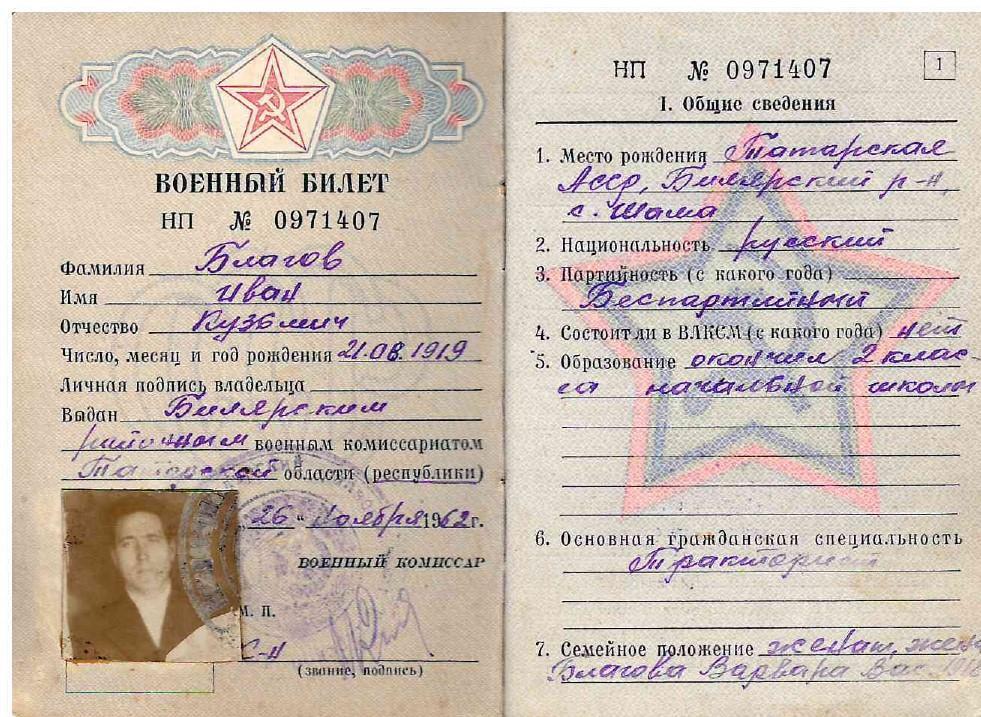 ВОЕННЫЙ БИЛЕТ
НП № 0971407
Фамилия Благов
Имя Иван
Отчество Кузьмич
Число, месяц и год рождения 21.08.1919
Личная подпись владельца
Выдан Билярским
районным военным комиссариатом
Татарской области (республики)
„26“ Ноября 1962 г.
ВОЕННЫЙ КОМИССАР
М. П.
(звание, подпись)
НП № 0971407
1
I. Общие сведения
1. Место рождения Татарская
Асср, Билярский р-н,
с. Шама
2. Национальность русский
3. Партийность (с какого года)
Беспартийный
4. Состоит ли в ВЛКСМ (с какого года) нет
5. Образование окончил 2 клас-
са начальной школы
6. Основная гражданская специальность
Тракторист
7. Семейное положение женат, жена
Благова Варвара